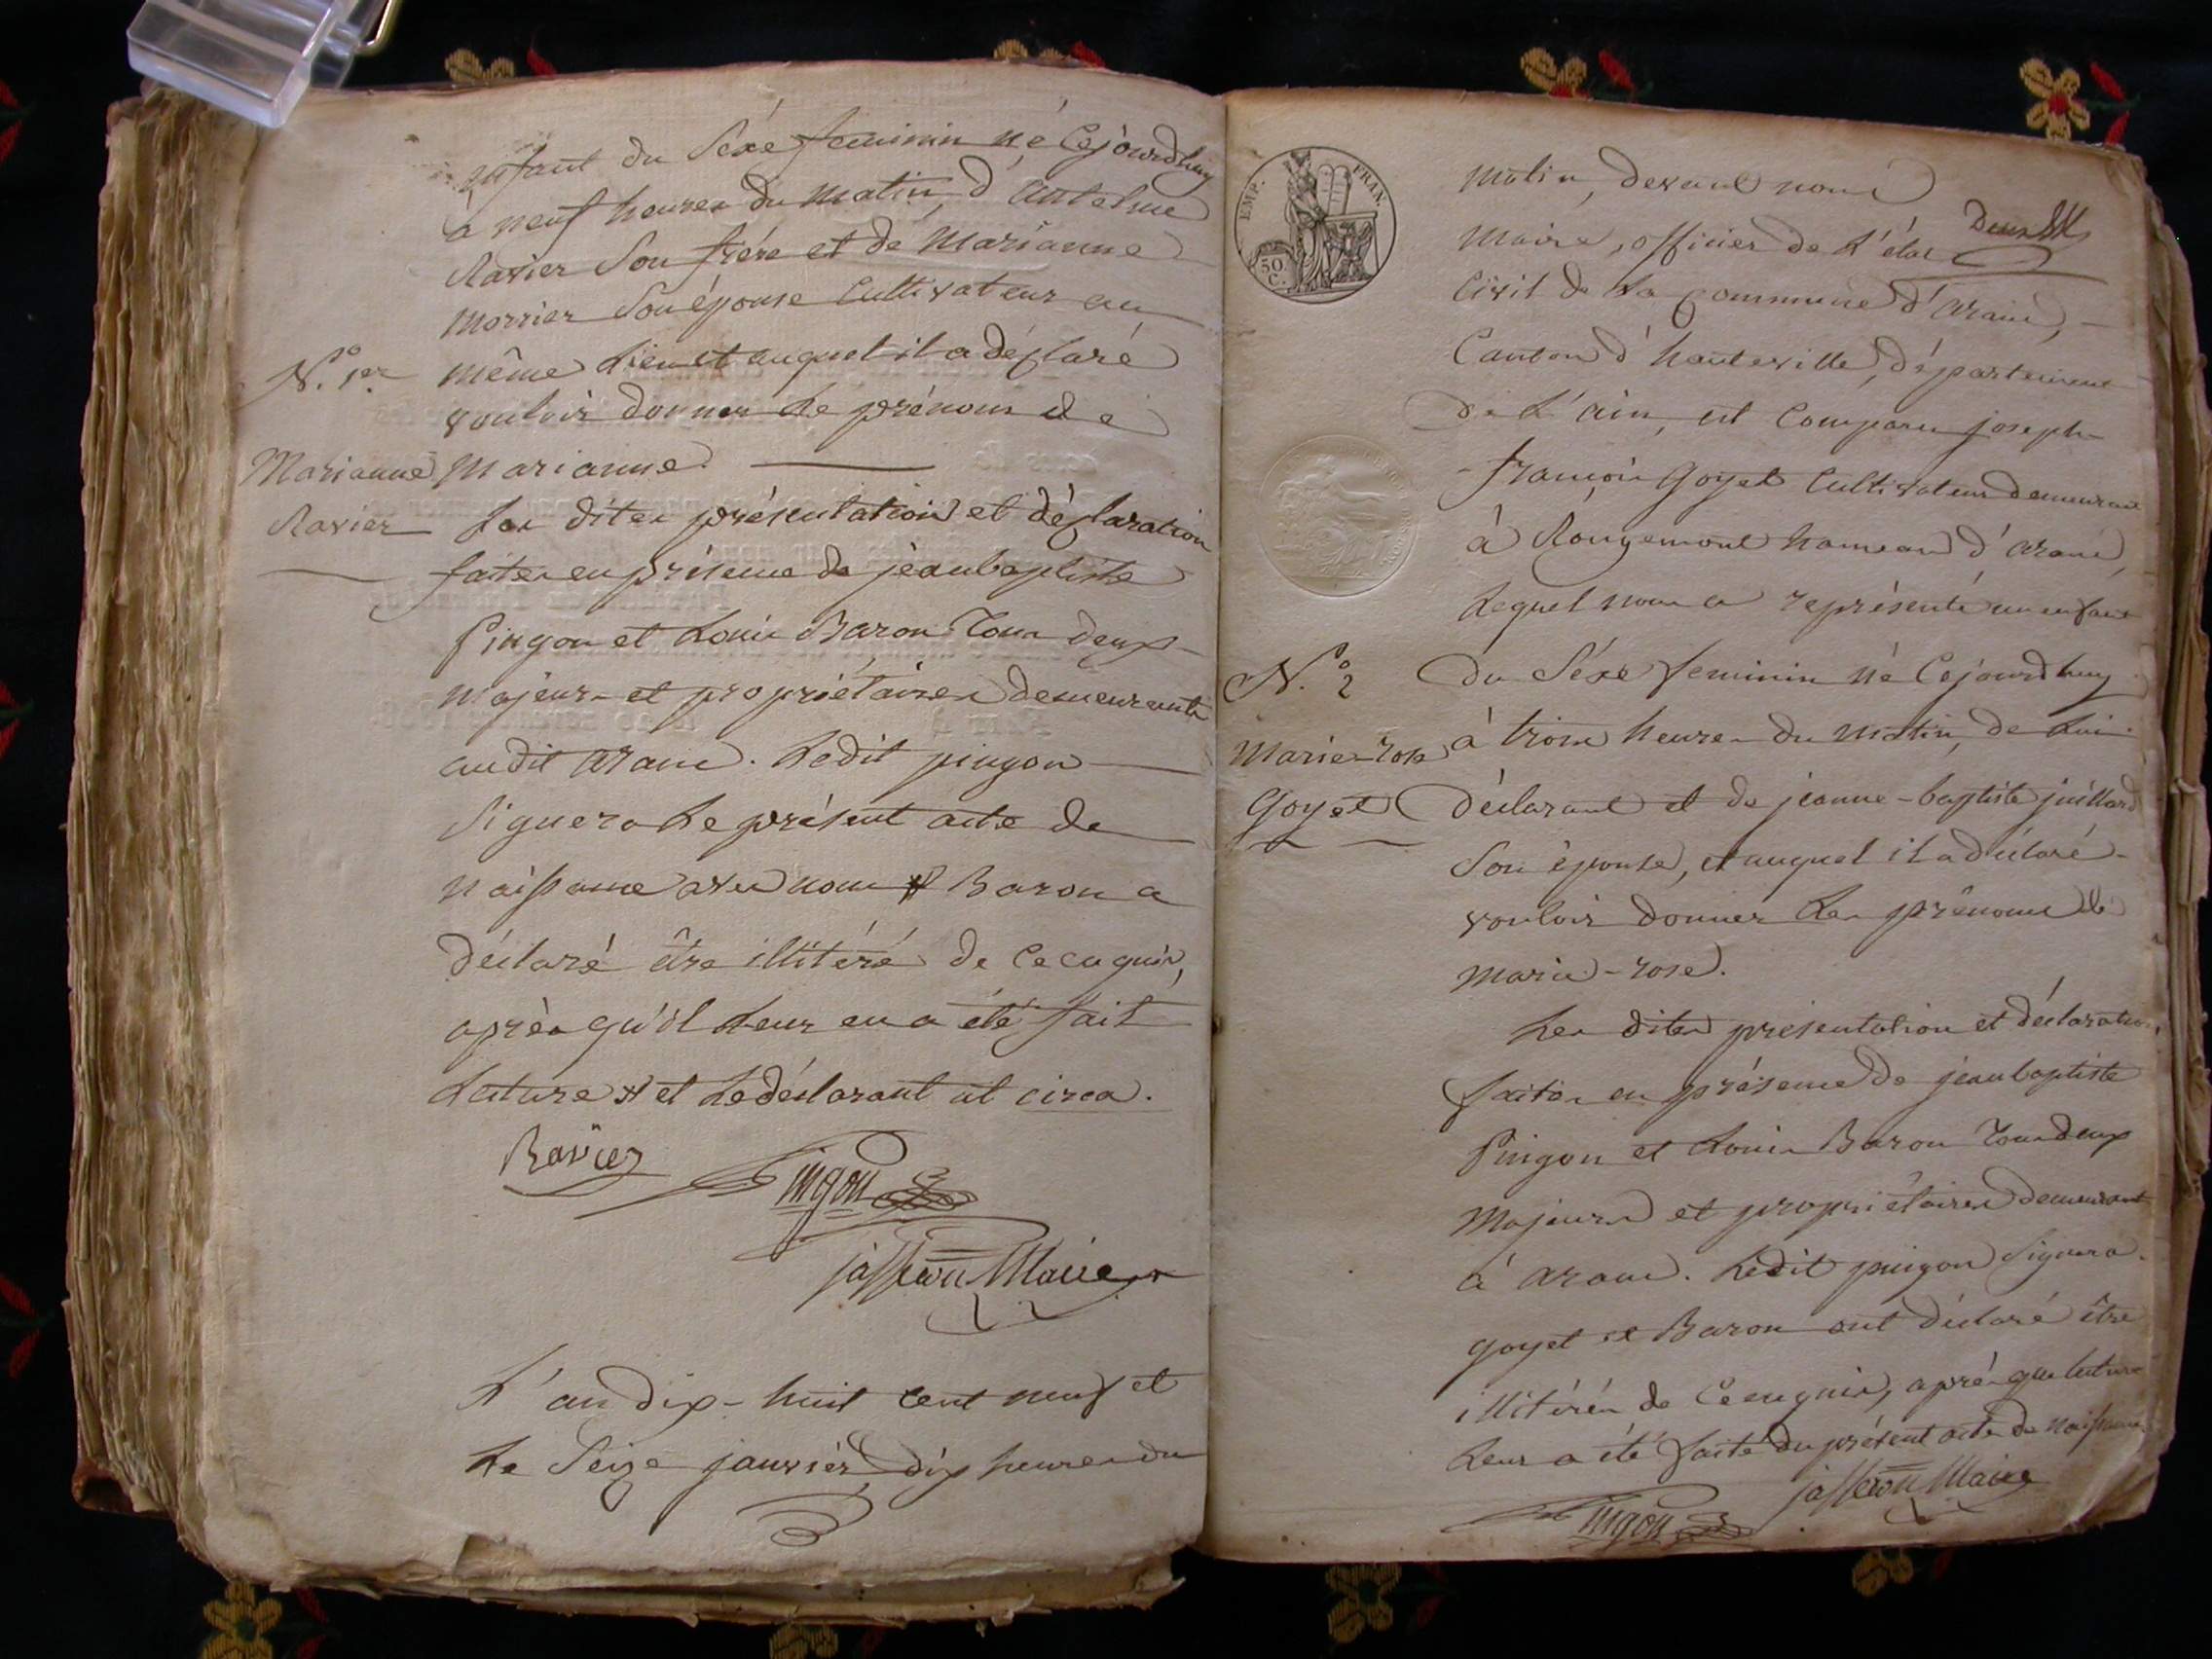 enfant du Séxe feminin né Cejourdhuy
à neuf heures du matin, d'antelme
Ravier Son frére et de Marianne
morrier Son épouse Cultivateur au
N.° 1er
même Lieu et auquel il a déclaré
vouloir donner Le prénom de
Marianne
Ravier
Marianne.
Les dites présentation et déclaration
faites en présence de jeanbaptiste
Pingon et Louis Baron Tous deux
majeurs et propriétaires demeurants
audit aranc. Ledit pingon
Signera Le présent acte de
naissance avec nous Baron a
déclaré être illitéré de ce enquis,
après qu'il Leur en a été fait
Lecture et Ledéclarant ut circa.
Ravier
Pingon
jasseron Maire
L'an dix-huit cent neuf et
Le Seize janvier, dix heures du
EMP. FRAN.
50 C.
matin, devant nous
maire, officier de L'état
Deux
Civil de La Commune d'aranc,
Canton d'hauteville, département
De L'ain, est Comparu joseph-
françois Goyet Cultivateur demeurant
à Rougemont hameau d'aranc,
Lequel nous a représenté un enfant
N.° 2
Marie-rose
Goyet
Du Séxe feminin né Cejourdhuy
à trois heures du matin, de Lui
Déclarant et de jeanne-baptiste juillard
Son épouse, et auquel il a déclaré
vouloir donner Les prénoms de
marie-rose.
Les dites présentation et déclaration
faites en présence de jeanbaptiste
Pingon et Louis Baron Tous deux
Majeurs et propriétaires demeurant
à aranc. Ledit pingon Signera
goyet et Baron ont déclaré être
illitérés de Ce enquis, après que lecture
Leur a été faite du présent acte de naissance.
Pingon
jasseron Maire